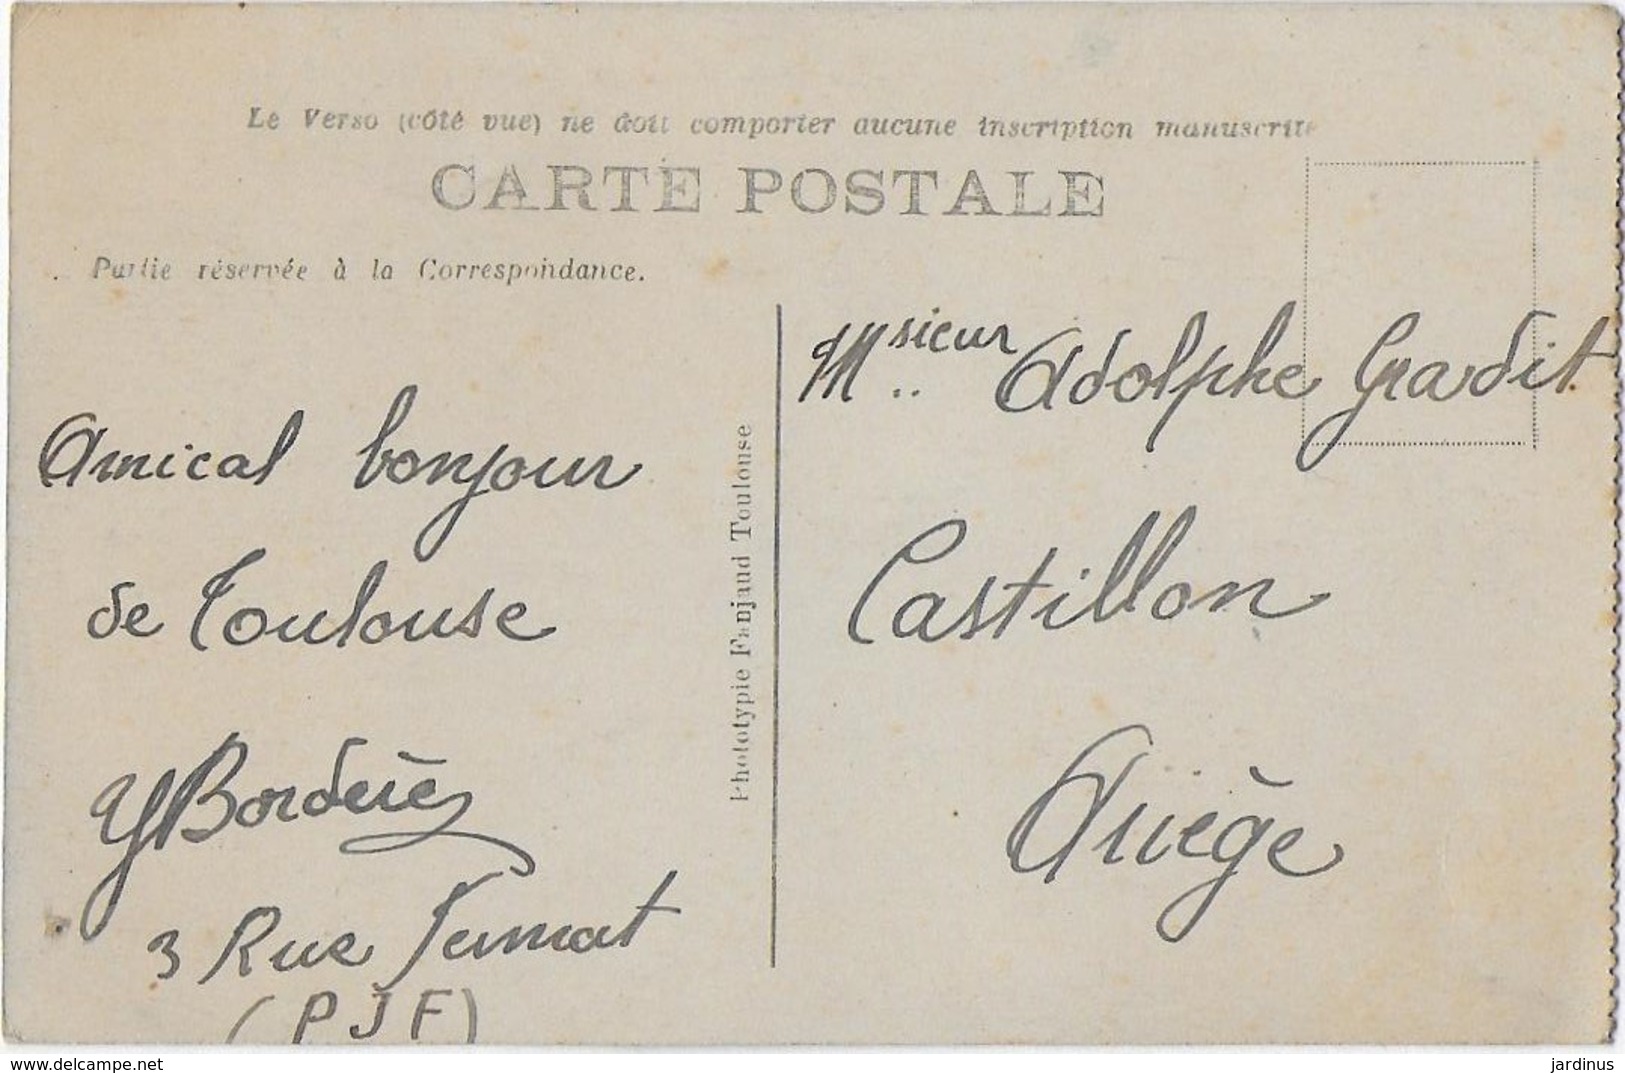 Le Verso (côté vue) ne doit comporter aucune inscription manuscrite
CARTE POSTALE
Partie réservée à la Correspondance.
Amical bonjour
de Toulouse
YBordères
3 Rue
(PJF)
Phototypie Fanjaud Toulouse
Msieur Adolphe Gradit
Castillon
Ariège
www.delcampe.net
jardinus